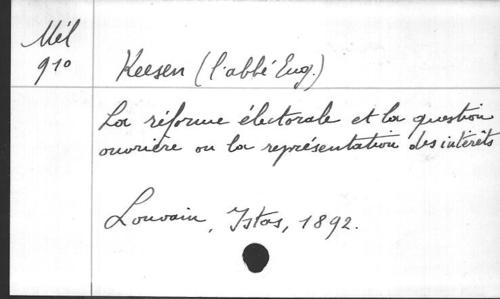 Mél
910
Keesen (l'abbé Eug.)
La réforme électorale et la question
ouvrière ou la représentation des intérêts
Louvain, Istas, 1892.